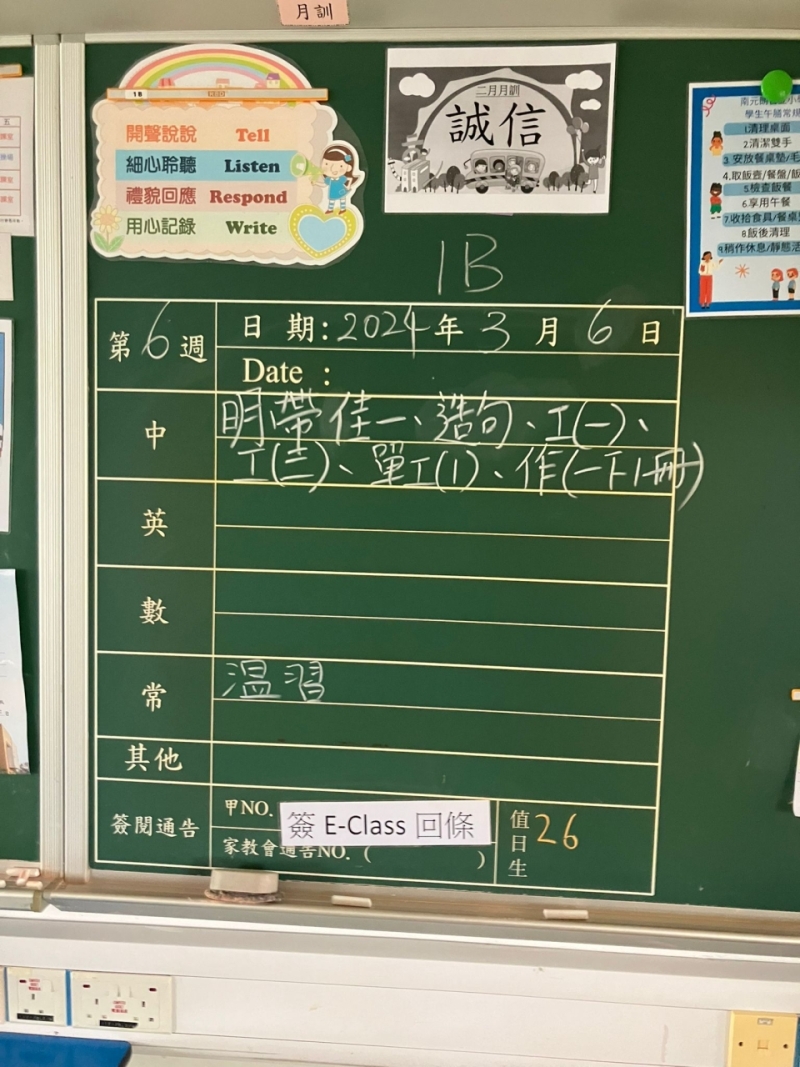 月訓
1B
開聲說說 Tell
細心聆聽 Listen
禮貌回應 Respond
用心記錄 Write
二月月訓
誠信
學生午膳常規
1.清理桌面
2.清潔雙手
3.安放餐桌墊/毛
4.取飯壺/餐盤/飯
5.檢查飯餐
6.享用午餐
7.收拾食具/餐桌
8.飯後清理
9.稍作休息/靜態活
1B
第6週
日期:2024年3月6日
Date :
中
明帶佳一、造句、工(一)、
工(三)、單工(1)、作(一下1冊)
英
數
常
溫習
其他
簽閱通告
甲NO.
簽 E-Class 回條
家教會通告NO. ( )
值日生
26